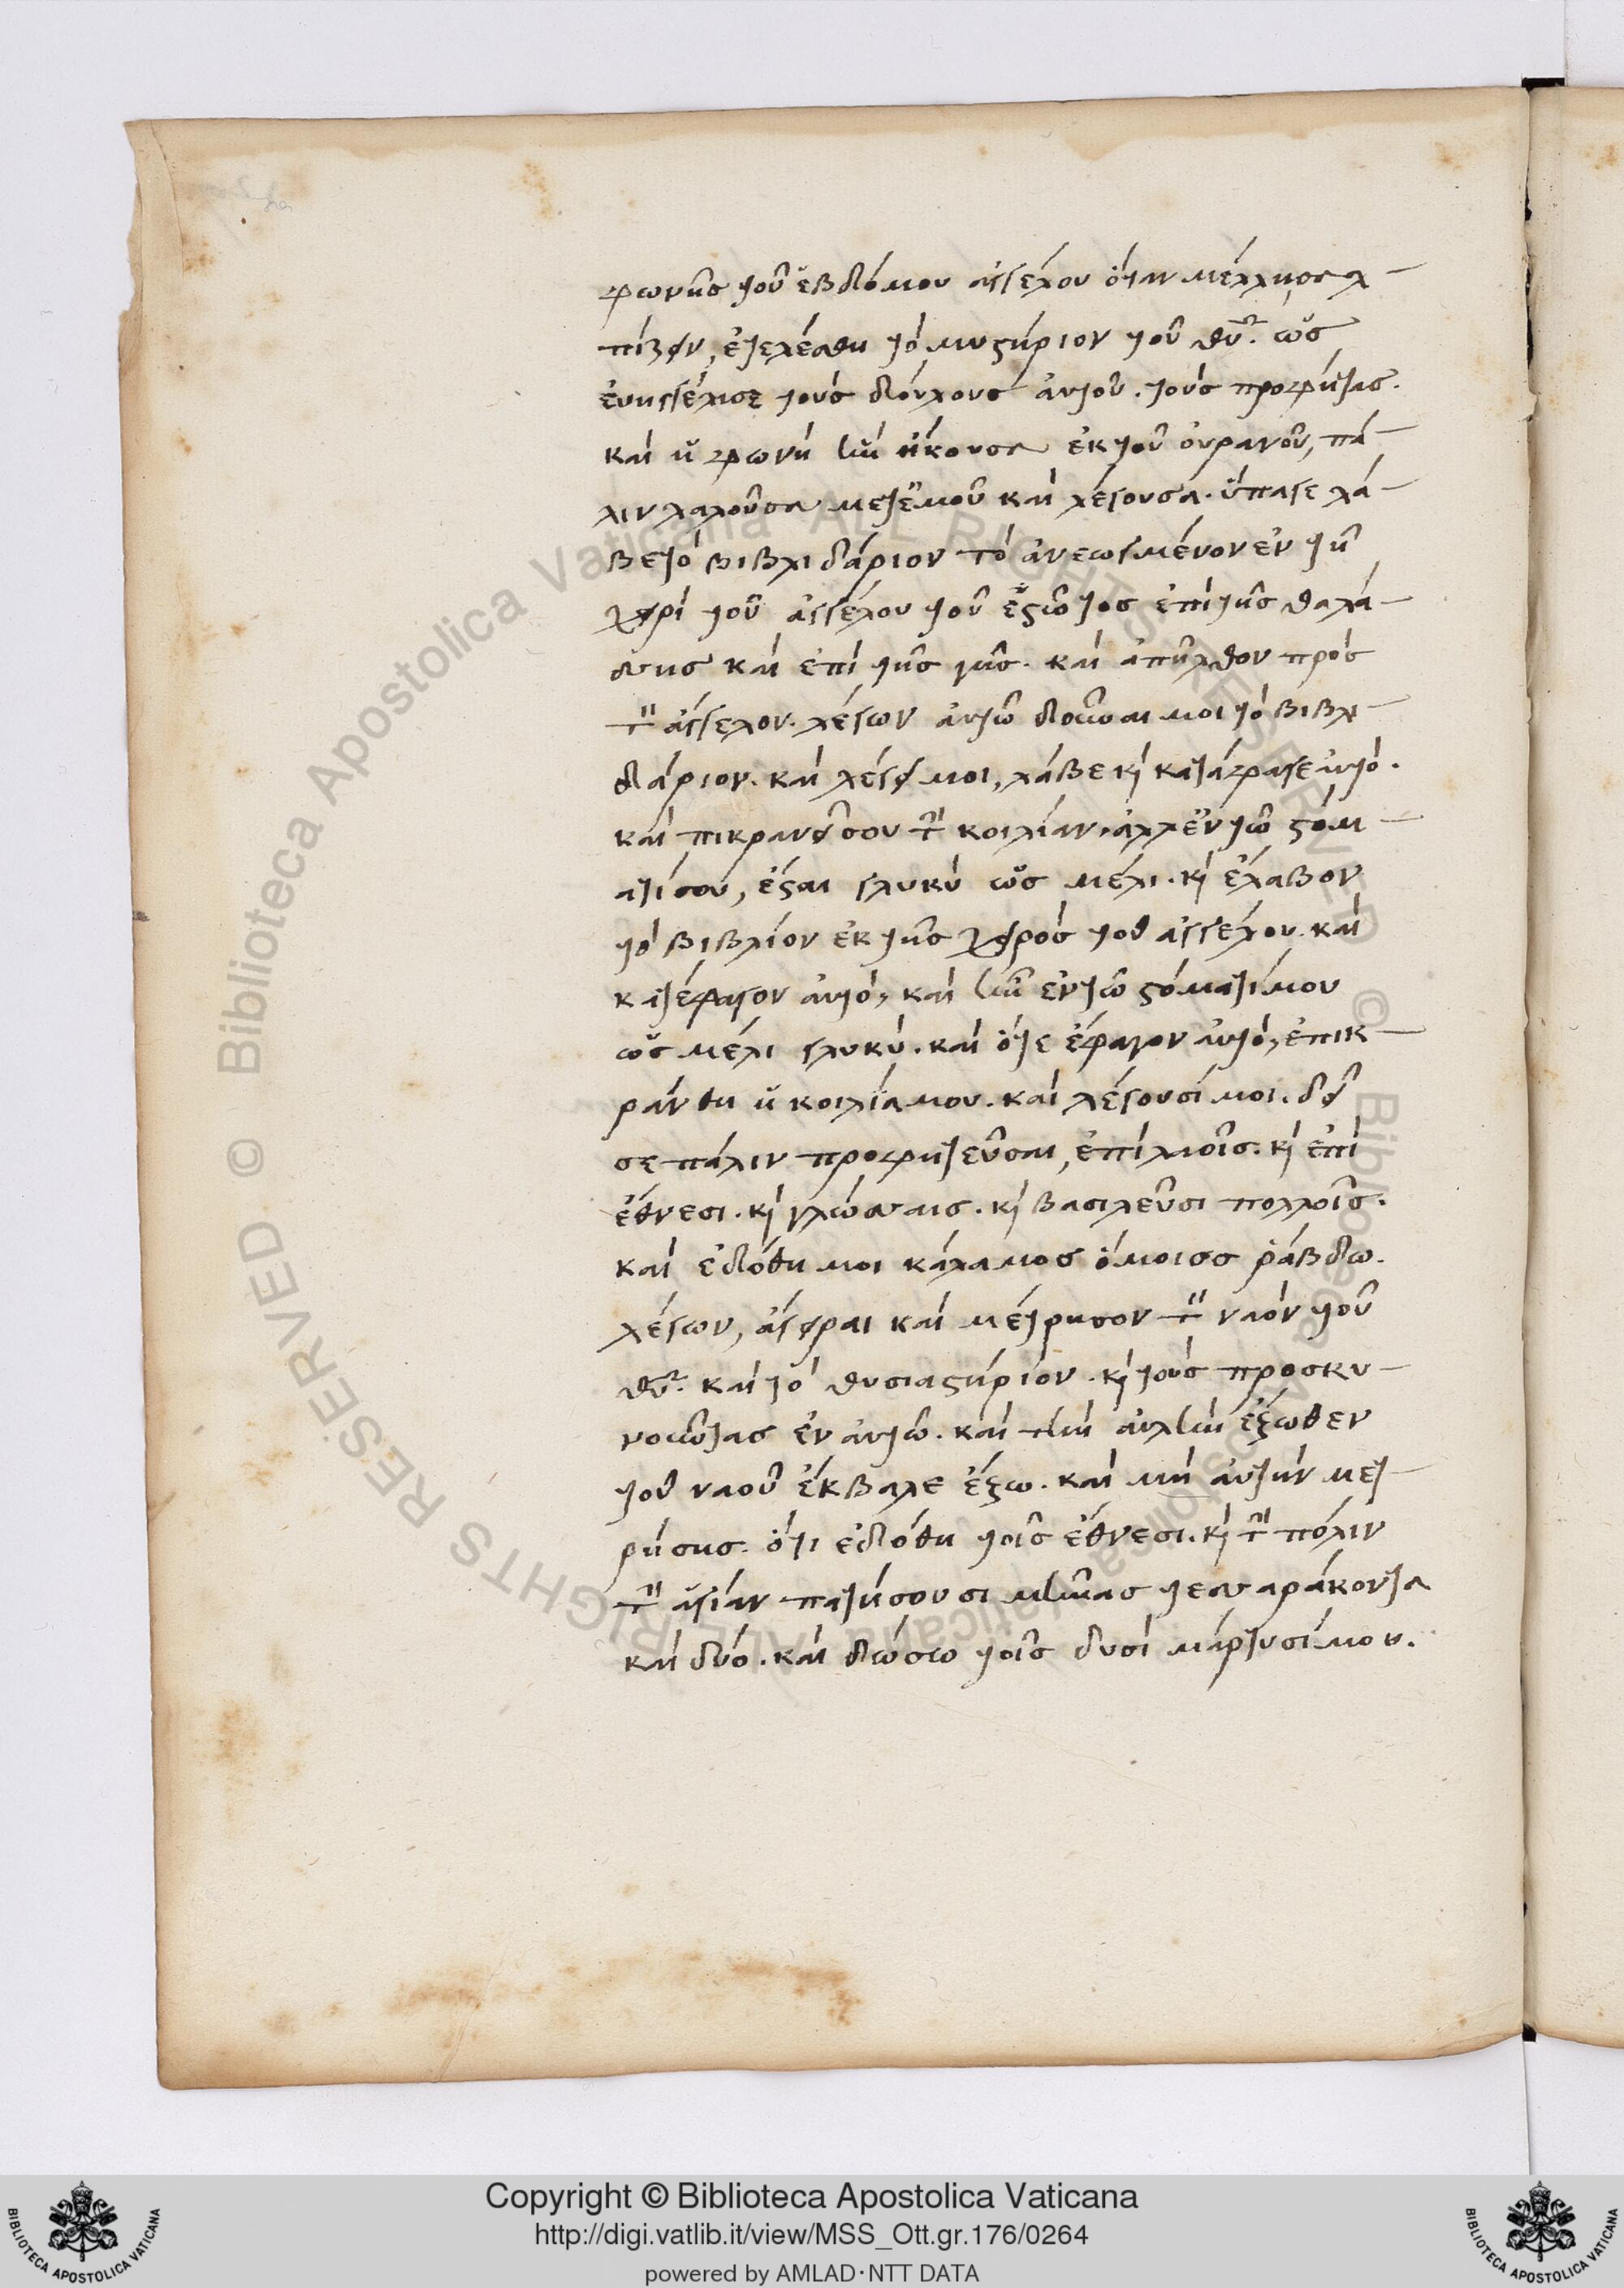 φωνῆς τοῦ ἑβδόμου ἀγγέλου ὅταν μέλλη σαλ
πίζειν, ἐτελέσθη τὸ μυστήριον τοῦ θυ. ὡς
ἐυηγγέλισε τοὺς δούλους ἀυτοῦ. τοὺς προφήτας.
καὶ ἡ φωνὴ ἣν ἤκουσα ἐκ τοῦ ὀυρανοῦ, πά
λιν λαλοῦσα μετ ἐμοῦ καὶ λέγουσα. ὕπαγε λά
βε τὸ βιβλιδάριον τὸ ἀνεωγμένον ἐν τῆ
χειρὶ τοῦ ἀγγέλου τοῦ ἑστῶτος ἐπὶ τῆς θαλά
σσης καὶ ἐπὶ τῆς γῆς. καὶ ἀπῆλθον πρὸς
τὸν ἄγγελον. λέγων ἀυτῶ δοῦναι μοι τὸ βιβλι
δάριον. καὶ λέγει μοι, λάβε κὶ κατάφαγε ἀυτό.
καὶ πικρανεῖ σου τὴν κοιλίαν. ἀλλ ἐν τῶ στόμ
ατί σου, ἔσται γλυκὺ ὡς μέλι. κὶ ἔλαβον
τὸ βιβλίον ἐκ τῆς χειρὸς τοῦ ἀγγέλου. καὶ
κατέφαγον ἀυτό, καὶ ἦν ἐν τῶ στόματί μου
ὡς μέλι γλυκύ. καὶ ὅτε ἔφαγον ἀυτό, ἐπικ
ράνθη ἡ κοιλία μου. καὶ λέγουσί μοι. δεῖ
σε πάλιν προφητεῦσαι, ἐπὶ λαοῖς. κὶ ἐπὶ
ἔθνεσι. κὶ γλώσσαις. κὶ βασιλεῦσι πολλοῖς.
καὶ ἐδόθη μοι κάλαμος ὅμοιος ῥάβδω.
λέγων, ἔγειραι καὶ μέτρησον τὸν ναὸν τοῦ
θυ. καὶ τὸ θυσιαστήριον. κὶ τοὺς προσκυ
νοῦντας ἐν ἀυτῶ. καὶ τὴν ἀυλὴν ἔξωθεν
τοῦ ναοῦ ἔκβαλε ἔξω. καὶ μὴ ἀυτὴν μετ
ρήσης. ὅτι ἐδόθη τοῖς ἔθνεσι. κὶ τὴν πόλιν
τὴν ἁγίαν πατήσουσι μῆνας τεσσαράκοντα
καὶ δύο. καὶ δώσω τοῖς δυσὶ μάρτυσί μου.
Copyright © Biblioteca Apostolica Vaticana
http://digi.vatlib.it/view/MSS_Ott.gr.176/0264
powered by AMLAD·NTT DATA